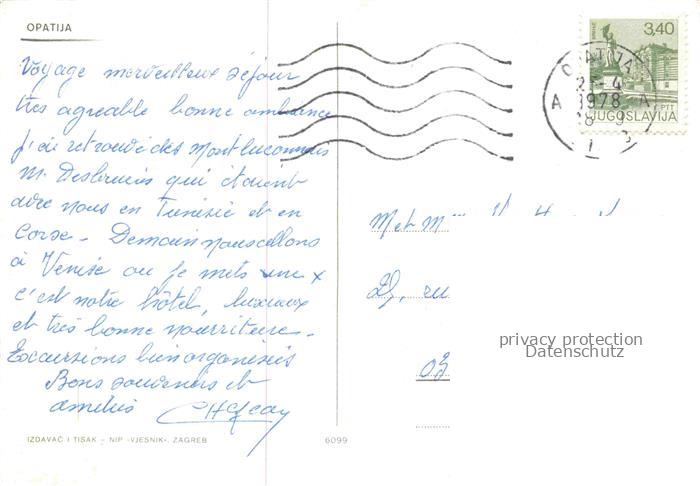 OPATIJA
Voyage merveilleux séjour
très agréable bonne ambiance
j'ai retrouvé des Montluçonnais
M. Desbruis qui étaient
avec nous en Tunisie et en
Corse - Demain nous allons
à Venise ou je mets une x
c'est notre hôtel, luxueux
et très bonne nourriture -
Excursions bien organisées
Bons souvenirs et
amitiés
IZDAVAČ I TISAK - NIP «VJESNIK», ZAGREB
6099
3,40
PTT
JUGOSLAVIJA
OPATIJA
1978
M et M
29, ru
03
privacy protection
Datenschutz